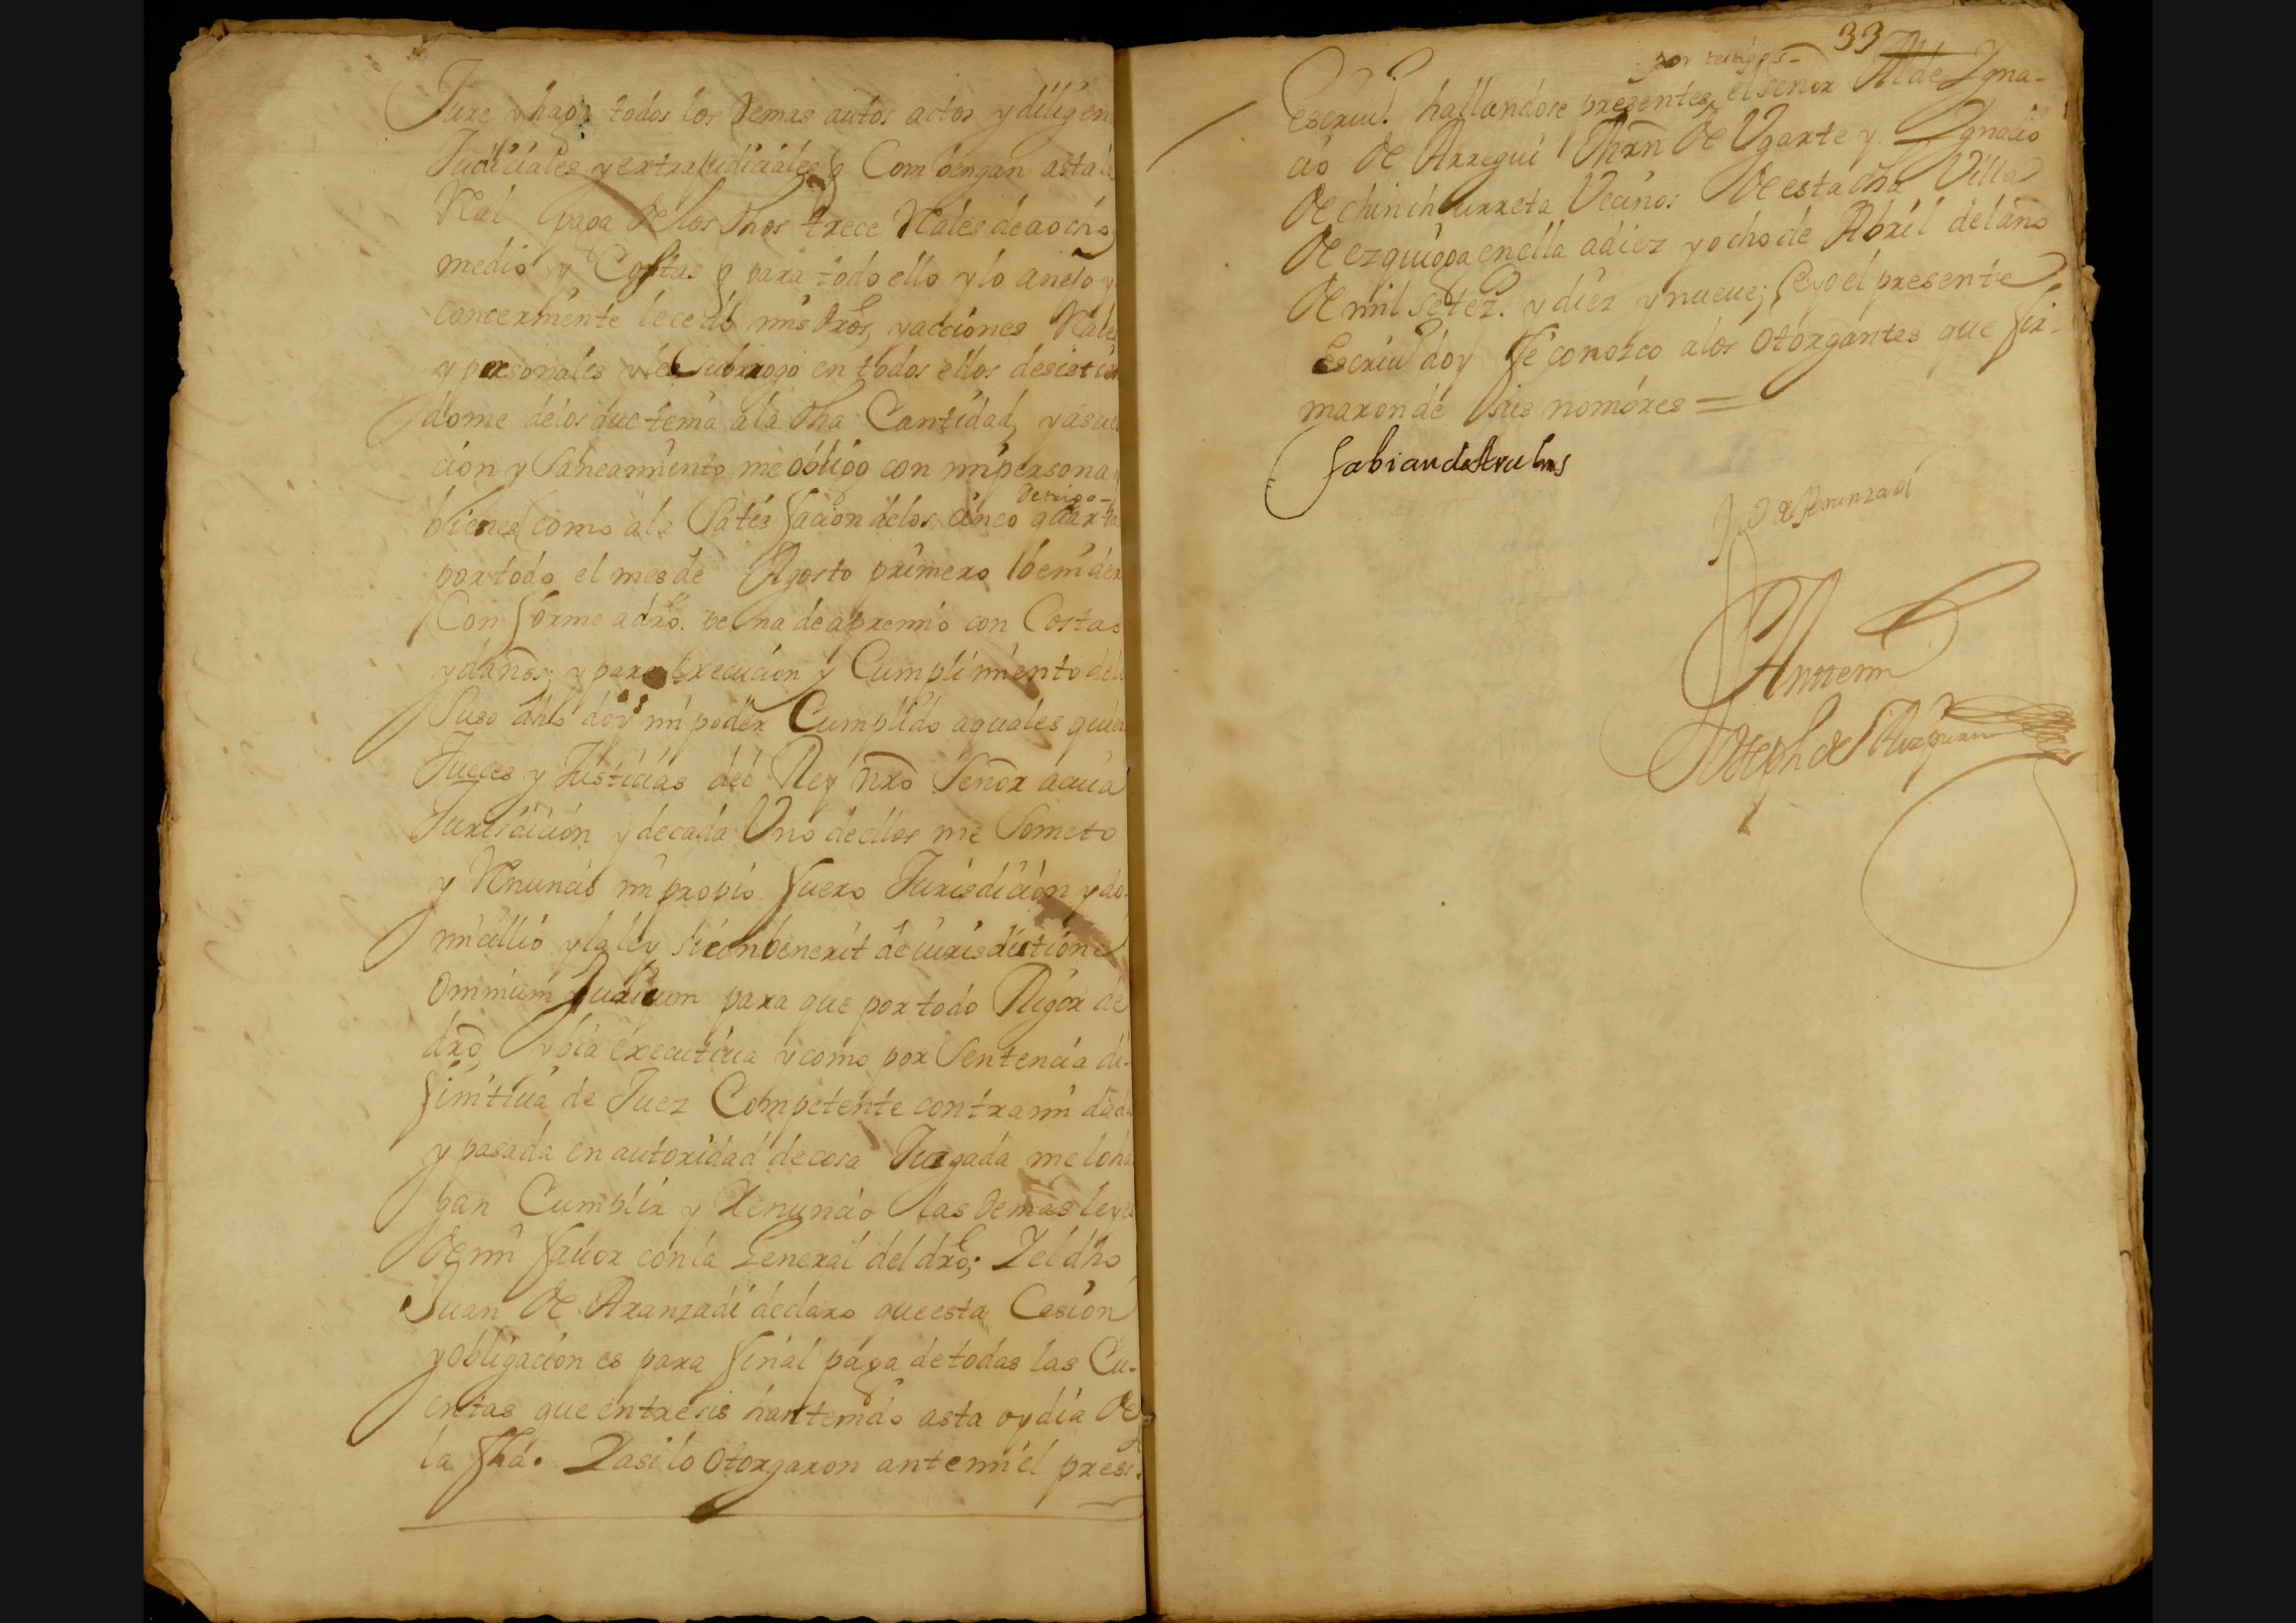 Jure y haga todos los demas autos actos y diligen
Judiciales y extrajudiciales q Combengan asta la
Real paga de los dhos trece Reales de a ocho
medio y Costas q para todo ello y lo anejo y
concerniente le cedo mis dros, y acciones Reales
y personales y le Subrrogo en todos ellos desistien
dome de los que tenia a la dha Cantidad, y a su
cion y Saneamiento me obligo con mi persona y
de trigo
bienes como a la Satisfacion de los cinco quarta
por todo el mes de Agosto primero benider
Conforme a dro. pena de apremio con Costas
y daños; y para execucion y Cumplimiento de lo
Suso dho doy mi poder Cumplido a quales quier
Jueces y Justicias del Rey nro Señor a cuia
Jurisdicion y de cada Uno de ellos me Someto
y Renuncio mi propio fuero Jurisdicion y do-
micillio y la ley sicombenerit de iurisdictione
omnium Judicum para que por todo Rigor de
dro, y bia executiua y como por Sentencia di-
finitiua de Juez Competente contra mi dada
y pasada en autoridad de cosa Juzgada me lo ha
gan Cumplir y Renuncio las demas leyes
de mi fauor con la General del dro; Y el dho
Juan de Aranzadi declaro que esta Cesion
y obligacion es para final paga de todas las Cu-
entas que entre sis han tenido asta oy dia de
la fha. Y asi lo otorgaron antemi el press.
33
por testigos
escriu.o hallandose presentes, el señor Alde Ygna-
cio de Arregui Thrn de Ugarte y Ygnacio
de chinchurreta Vecinos de esta dha Villa
de ezquioga en ella a diez y ocho de Abril del año
de mil setez. y diez y nueue; e yo el presente
Escriu.o doy fe conozco a los otorgantes que fir-
maron de sus nombres =
Fabian de
Ju de Aranzadi
Antemi
Joseph de